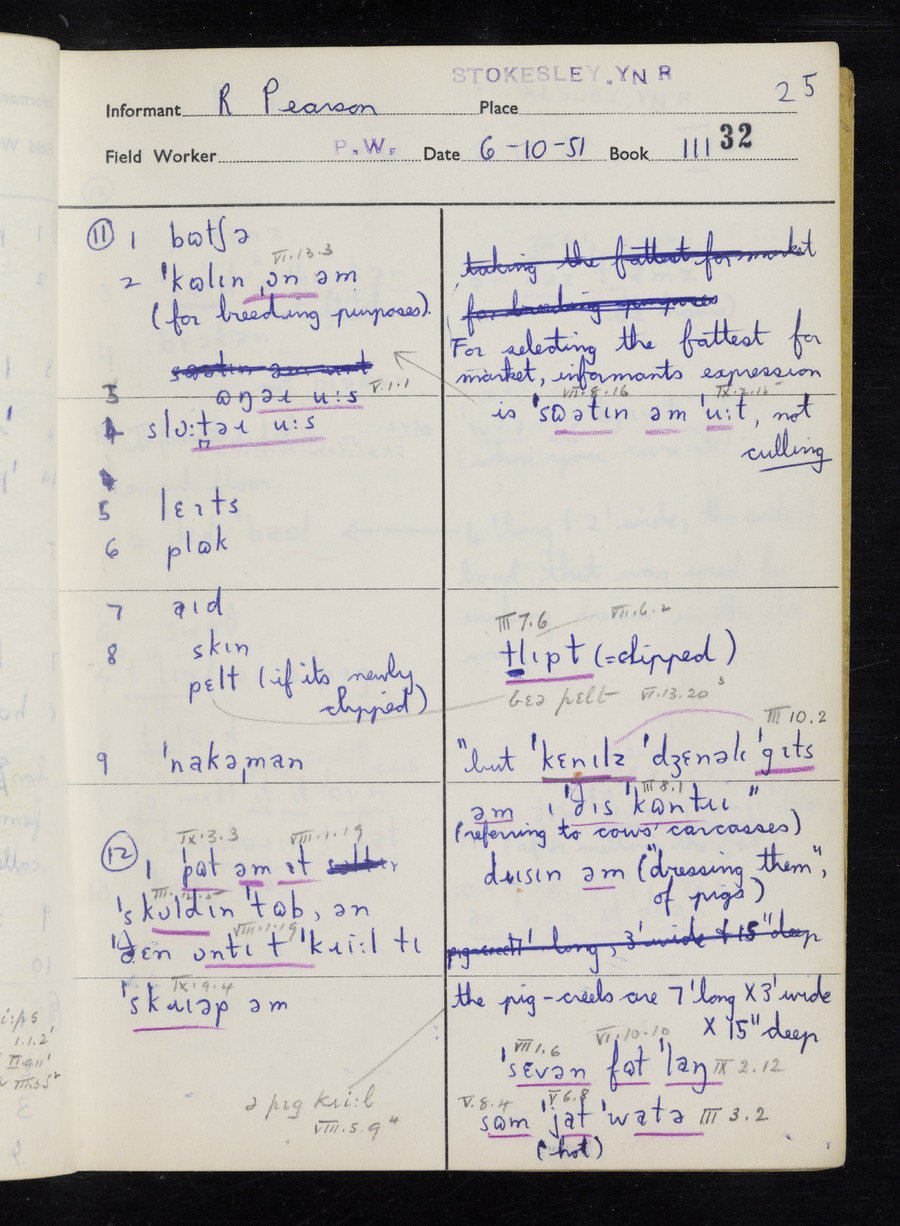 STOKESLEY, YN R
25
Informant R Pearson Place
Field Worker P.W. Date 6-10-51 Book III 32
⑪ 1 bɷtʃə
VI.13.3
2 ˈkɷlɪn ˌɒn əm
(for breeding purposes).
3 ɷŋəɹ uːs V.1.1
4 slɔːtəɹ uːs
5 lɛɪts
6 plɷk
7 aɪd
8 skɪn
pɛlt (if its newly
clipped)
9 ˈnakəˌman
IX.3.3 VIII.1.19
⑫ 1 ˈpɷt əm ɪt
ˈskɷldɪn ˈtɷb, ən
VIII.1.19
ˈðɛn ɒntɪ t ˈkɹiːl tɪ
IX.9.4
ˈskɹɪəp əm
ə pɪg kɹiːl
VIII.5.9
taking the fattest for market
for breeding purposes
For selecting the fattest for
market, informants expression
VII.8.16
is ˈsɷətɪn əm ˈuːt, not
culling
III 7.6 VII.6.2
tlɪpt (=clipped)
bɛə pɛlt VI.13.20³
III 10.2
"but ˈkɛnɪlz ˈdʒɛnəlɪ ˈgɪts
III 8.1
əm ɪ ˈðɪs ˈkɷntɹɪ"
(referring to cows' carcasses)
dɹɪsɪn əm ("dressing them",
of pigs)
long, 3' wide + 15" deep
the pig-creels are 7' long X 3' wide
X 15" deep
VII 1.6 VI.10.10
ˈsɛvən fɷt ˈlaŋ IX 2.12
V.8.4 V 6.8
sɷm ˈjat ˈwatə III 3.2
(hot)